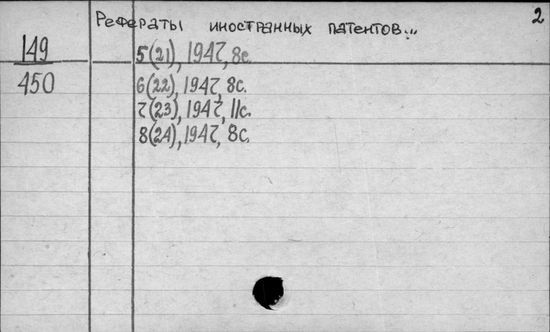 2
Рефераты иностранных патентов...
149 5(21), 1947, 8с.
450 6(22), 1947, 8с.
7(23), 1947, 11с.
8(24), 1947, 8с.